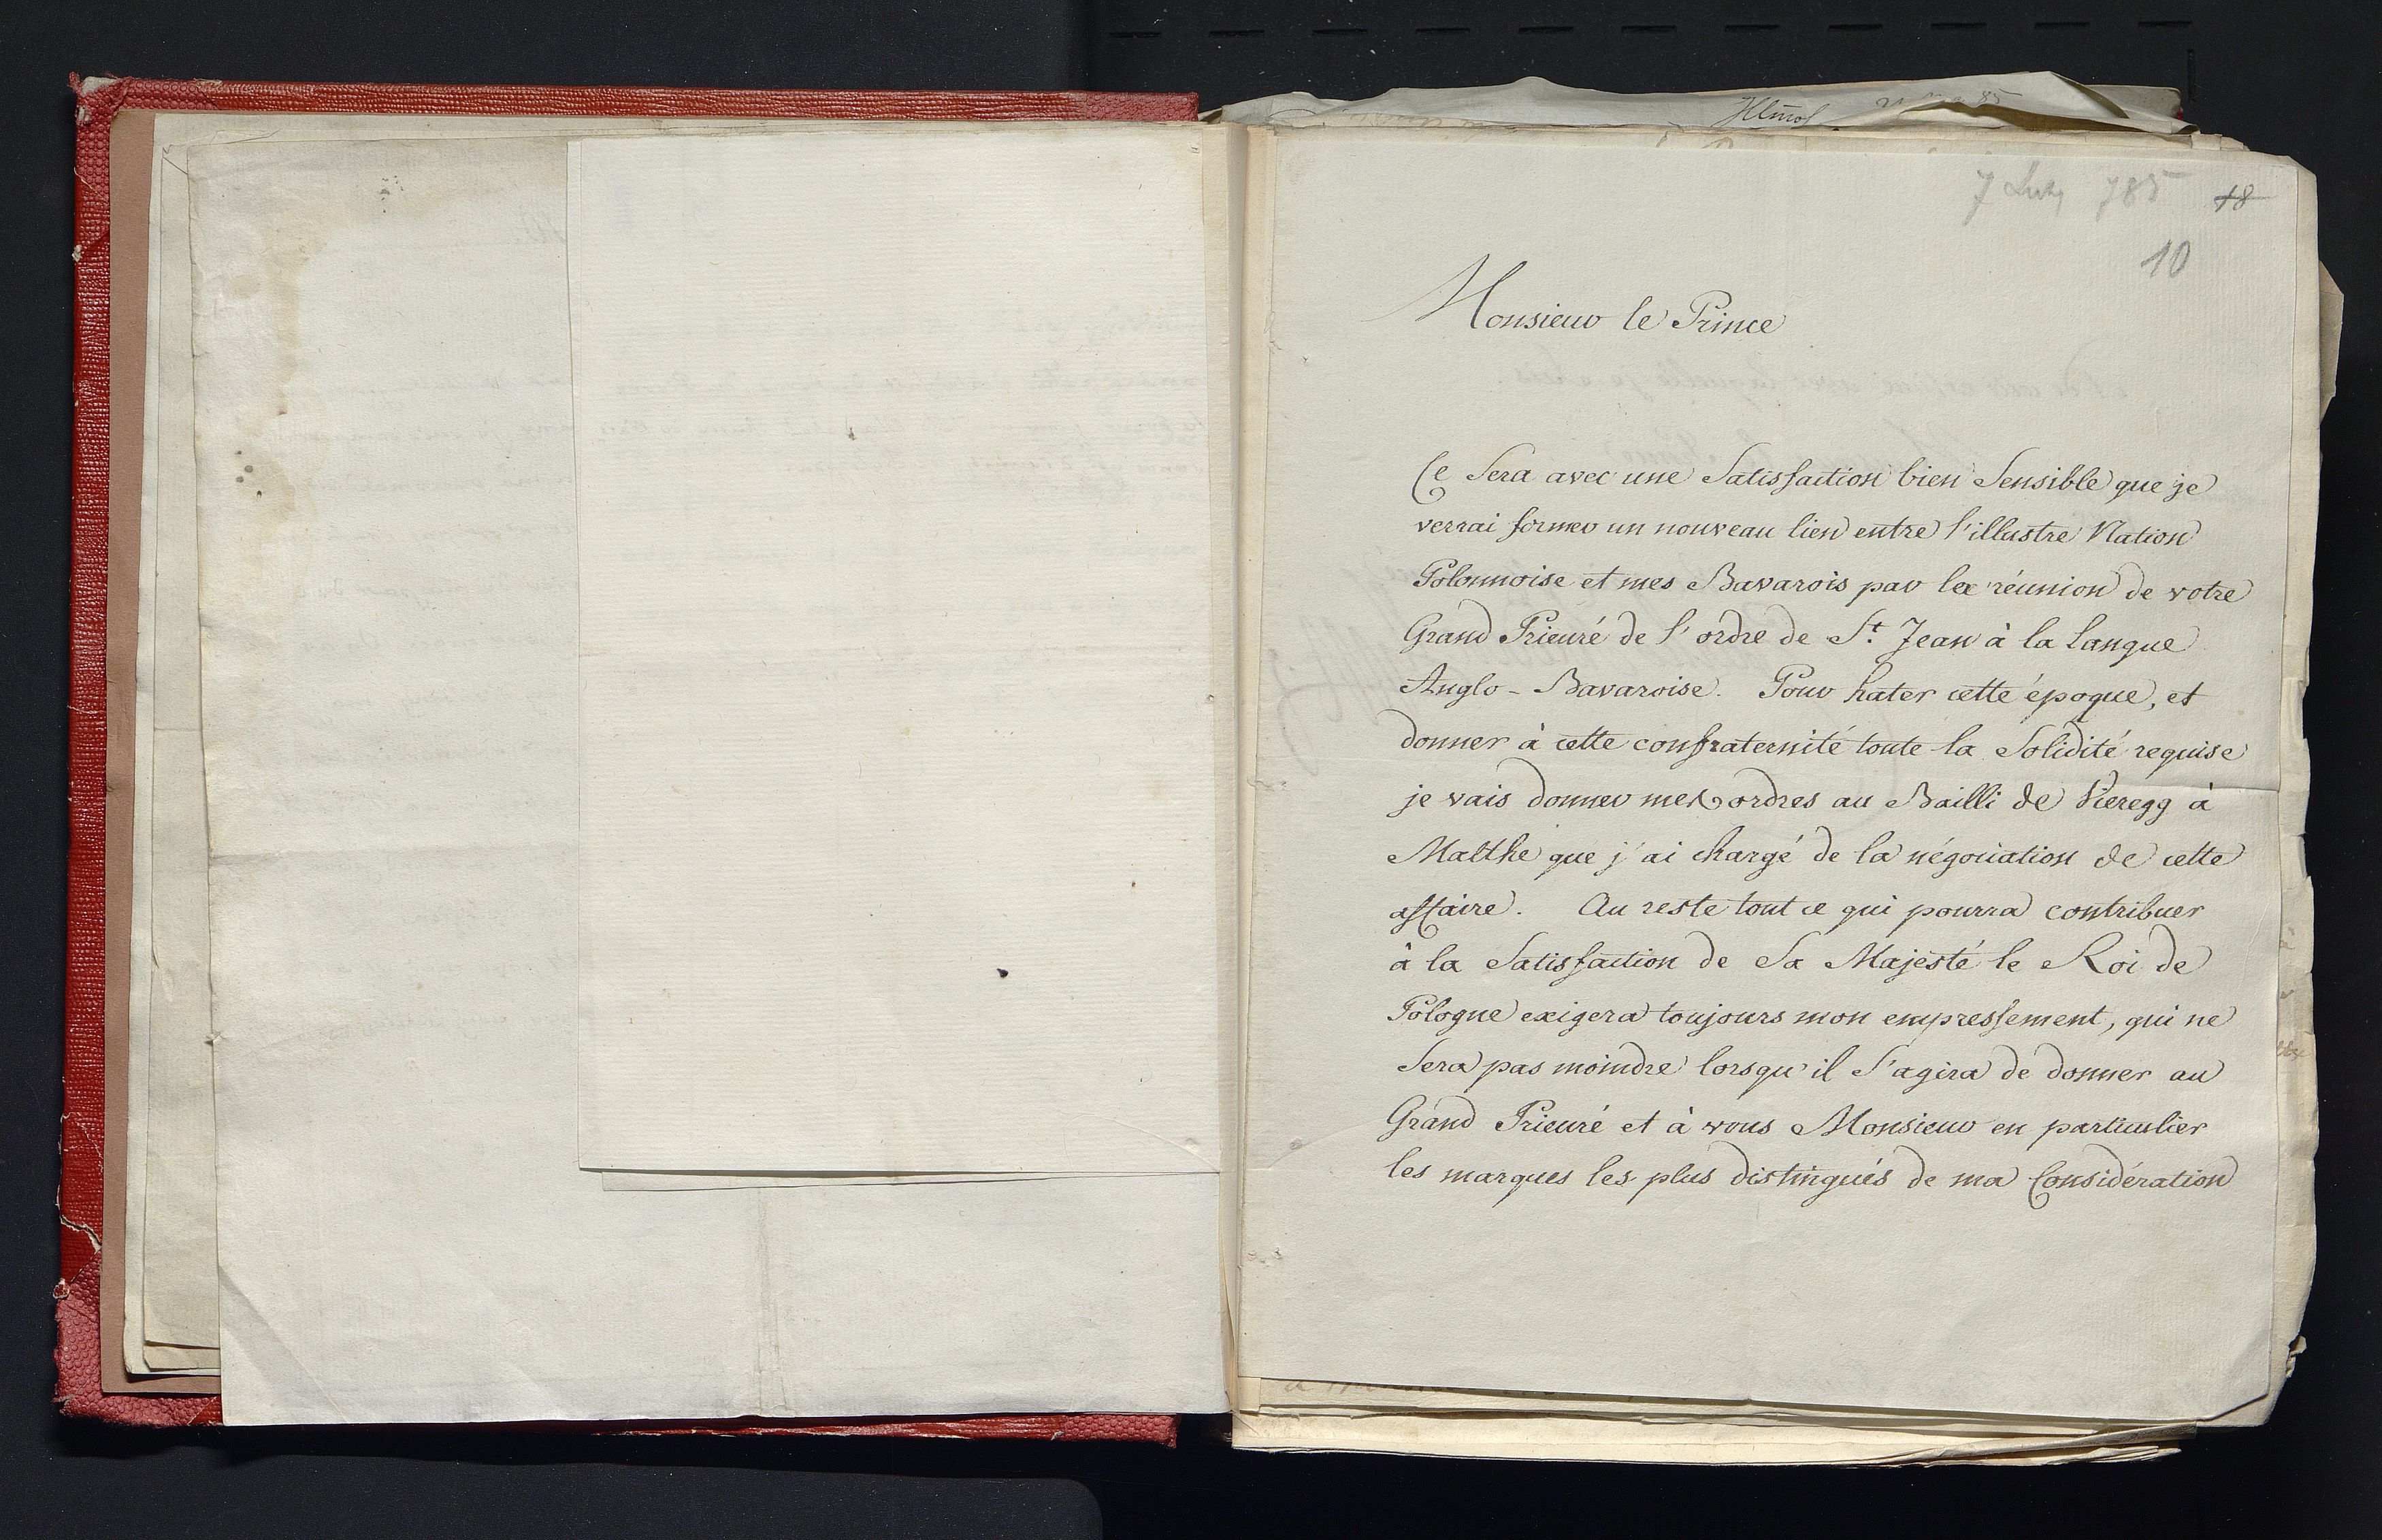 7 Lut. 785
18
10
Monsieur le Prince
Ce Sera avec une Satisfaction bien Sensible que je
verrai former un nouveau lien entre l'illustre Nation
Polonnoise et mes Bavarois par la réunion de votre
Grand Prieuré de l'ordre de St. Jean à la Langue
Anglo-Bavaroise. Pour hater cette époque, et
donner à cette confraternité toute la Solidité requise
je vais donner mes ordres au Bailli de Vieregg à
Malthe que j'ai chargé de la négociation de cette
affaire. Au reste tout ce qui pourra contribuer
à la Satisfaction de Sa Majesté le Roi de
Pologne exigera toujours mon empressement, qui ne
Sera pas moindre lorsqu'il S'agira de donner au
Grand Prieuré et à vous Monsieur en particulier
les marques les plus distingués de ma Considération